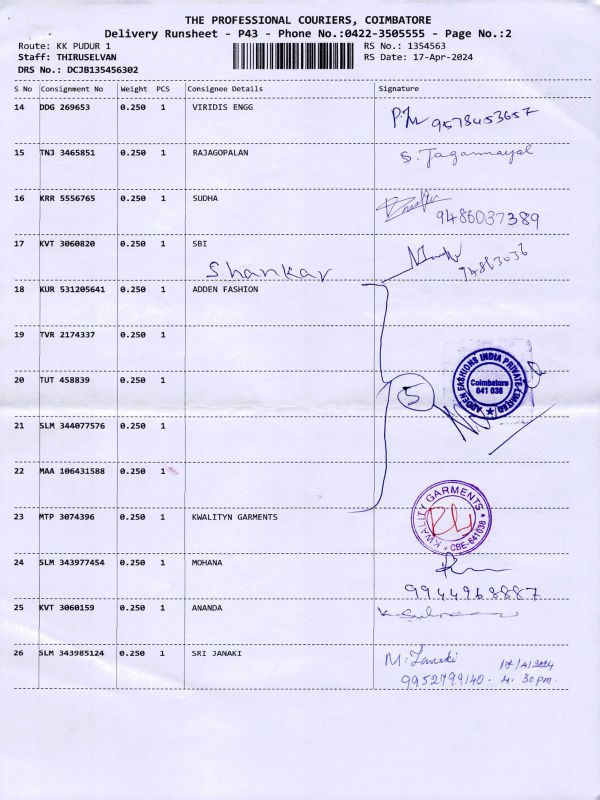 THE PROFESSIONAL COURIERS, COIMBATORE
Delivery Runsheet - P43 - Phone No.:0422-3505555 - Page No.:2
Route: KK PUDUR 1 RS No.: 1354563
Staff: THIRUSELVAN RS Date: 17-Apr-2024
DRS No.: DCJB135456302
S No Consignment No Weight PCS Consignee Details Signature
14 DDG 269653 0.250 1 VIRIDIS ENGG
9578453657
15 TNJ 3465851 0.250 1 RAJAGOPALAN
16 KRR 5556765 0.250 1 SUDHA
9486037389
17 KVT 3060820 0.250 1 SBI
Shankar 94883036
18 KUR 531205641 0.250 1 ADDEN FASHION
19 TVR 2174337 0.250 1
20 TUT 458839 0.250 1
5
ADDEN FASHIONS INDIA PRIVATE LIMITED
Coimbatore
641 038
21 SLM 344077576 0.250 1
22 MAA 106431588 0.250 1
23 MTP 3074396 0.250 1 KWALITYN GARMENTS
KWALITY GARMENTS
CBE-641038
24 SLM 343977454 0.250 1 MOHANA
9944968887
25 KVT 3060159 0.250 1 ANANDA
26 SLM 343985124 0.250 1 SRI JANAKI
M. Janaki 17/4/2024
9952799140. 4. 30pm.